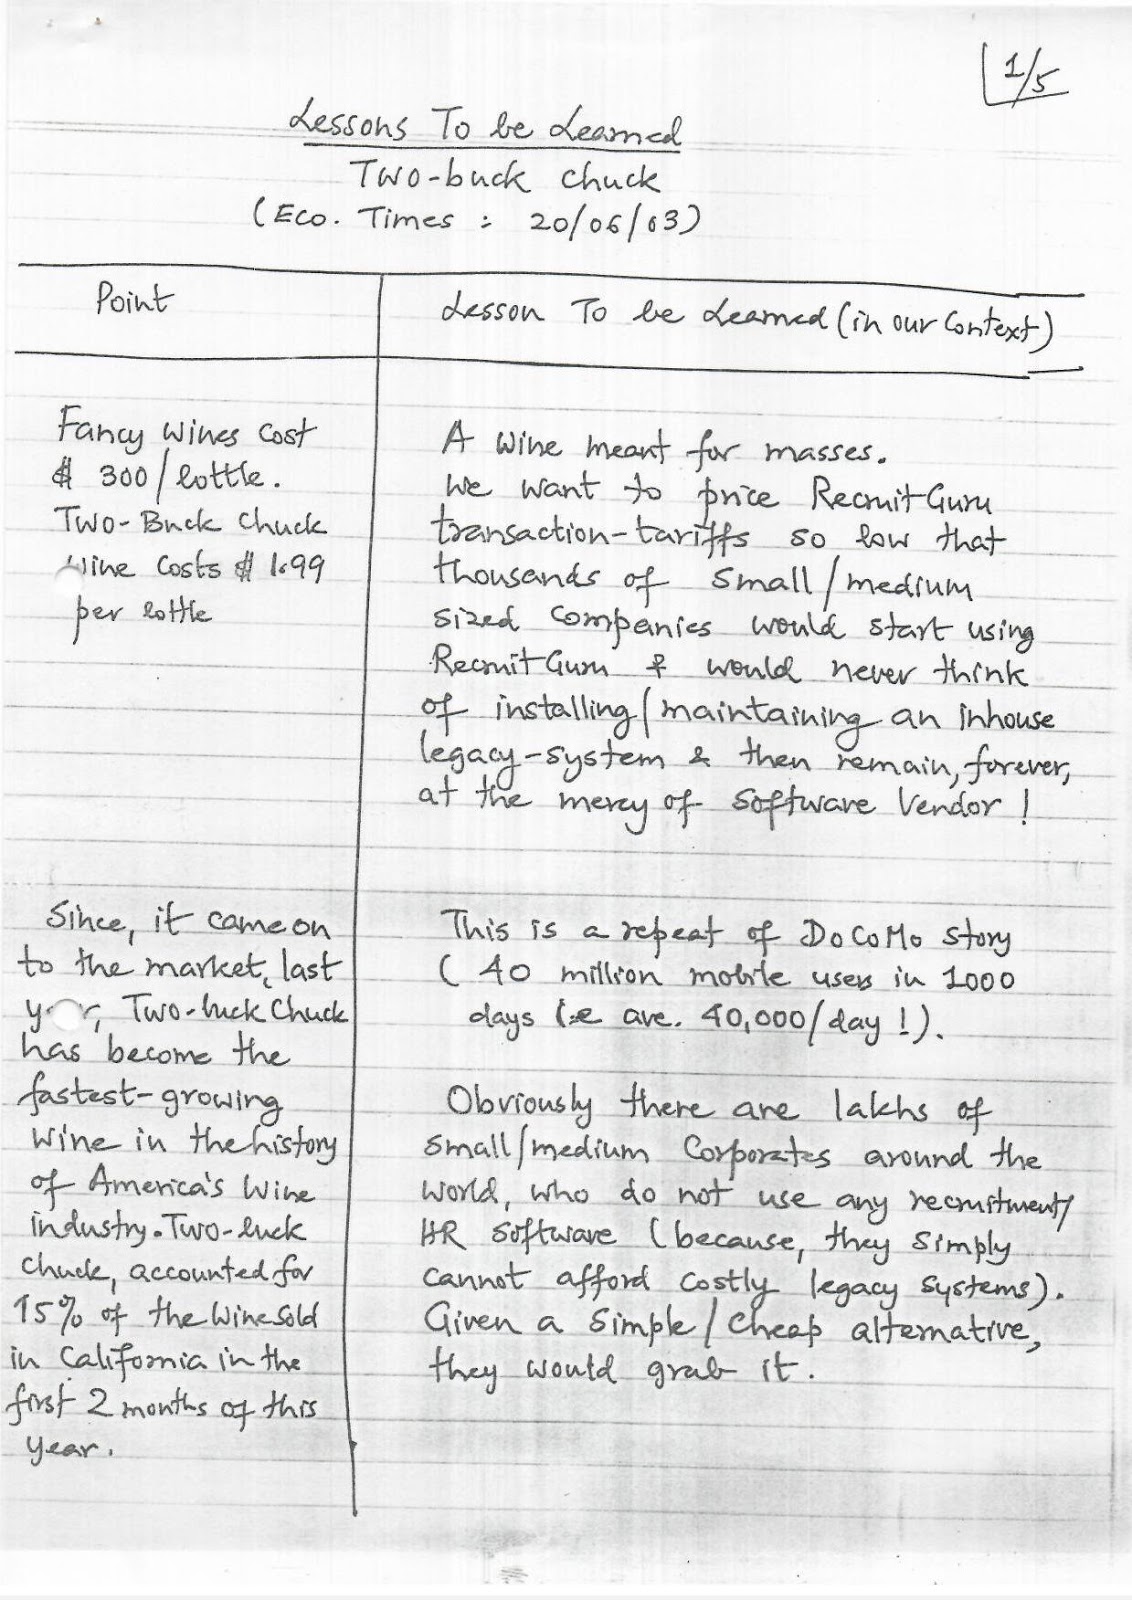 1/5
Lessons To be Learned
Two-buck chuck
(Eco. Times : 20/06/03)
Point
Lesson To be Learned (in our context)
Fancy wines cost
$ 300/bottle.
Two-Buck Chuck
wine costs $ 1.99
per bottle
A wine meant for masses.
We want to price RecruitGuru
transaction-tariffs so low that
thousands of small/medium
sized companies would start using
RecruitGuru & would never think
of installing/maintaining an inhouse
legacy-system & then remain, forever,
at the mercy of software vendor !
Since, it came on
to the market, last
year, Two-buck Chuck
has become the
fastest-growing
wine in the history
of America's wine
industry. Two-buck
chuck, accounted for
15% of the wine sold
in California in the
first 2 months of this
year.
This is a repeat of DoCoMo story
( 40 million mobile users in 1000
days (i.e ave. 40,000/day !).
Obviously there are lakhs of
small/medium Corporates around the
world, who do not use any recruitment/
HR software (because, they simply
cannot afford costly legacy systems).
Given a simple/cheap alternative,
they would grab it.